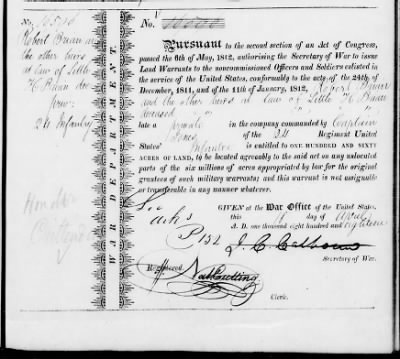 No. 10500
Robert Bruan and
the other heirs
at law of Little
24 Infantry
WAR DEPARTMENT.
No.
Pursuant to the second section of an Act of Congress,
passed the 6th of May, 1812, authorising the Secretary of War to issue
Land Warrants to the noncommissioned Officers and Soldiers enlisted in
the service of the United States, conformably to the acts of the 24th of
December, 1811, and of the 11th of January, 1812, Robert
and the other heirs at law of Little
deceased
late a private in the company commanded by Captain
Jones of the 24 Regiment United
States' Infantry is entitled to ONE HUNDRED AND SIXTY
ACRES OF LAND, to be located agreeably to the said act on any unlocated
parts of the six millions of acres appropriated by law for the original
grantees of such military warrants; and this warrant is not assignable
or transferable in any manner whatever.
GIVEN at the War Office of the United States,
this day of April
A. D. one thousand eight hundred and eighteen
P 152 J. C. Calhoun
Secretary of War.
Registered
Clerk.